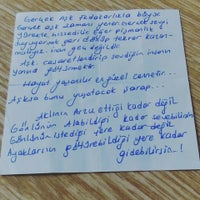 Gerçek Aşk fedakarlıkla büyür
Gerçek aşk zaman yerer
yürekte hissedilir Eğer pişmanlık
duyuyorsak geri dönüp tekrar kazan-
mutlaka geç değildir.
Aşk.. cesaretlendirip sevdiğin insanın
yanına götürmektir.
Hayat yaşarsan en güzel cennettir...
Aşksa bunu yaşatacak şarap...
Aklının Arzu ettiği kadar değil
Gönlünün Alabildiği kadar sevebilirsin
Gönlünün istediği yere kadar değil
Ayaklarının götürebildiği yere kadar
gidebilirsin...!